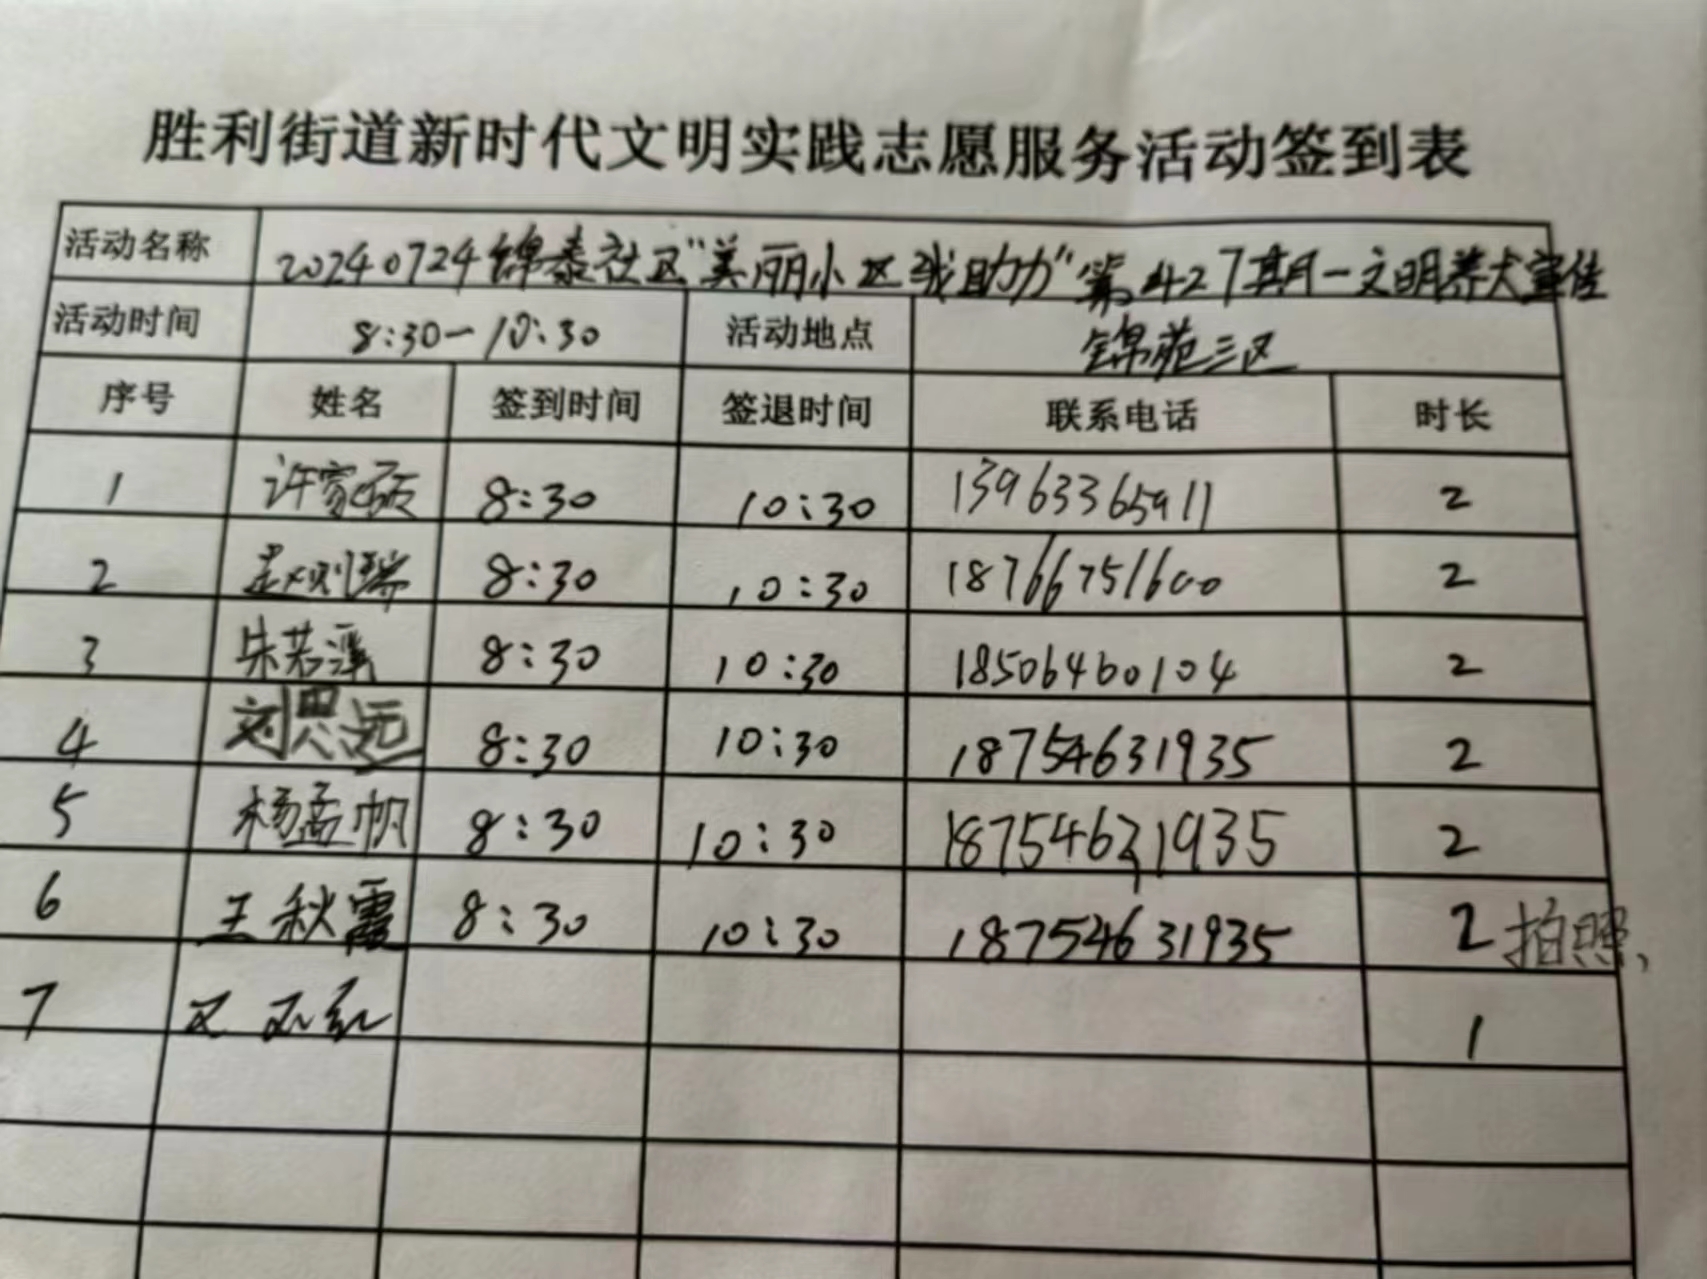 胜利街道新时代文明实践志愿服务活动签到表
活动名称 20240724锦泰社区"美丽小区我助力"第427期—文明养犬宣传
活动时间 8:30—10:30 活动地点 锦苑三区
序号 姓名 签到时间 签退时间 联系电话 时长
1 许家硕 8:30 10:30 13963365911 2
2 8:30 10:30 18766751600 2
3 朱若溪 8:30 10:30 18506460104 2
4 刘思远 8:30 10:30 18754631935 2
5 杨孟帆 8:30 10:30 18754631935 2
6 王秋霞 8:30 10:30 18754631935 2 拍照、
7 1